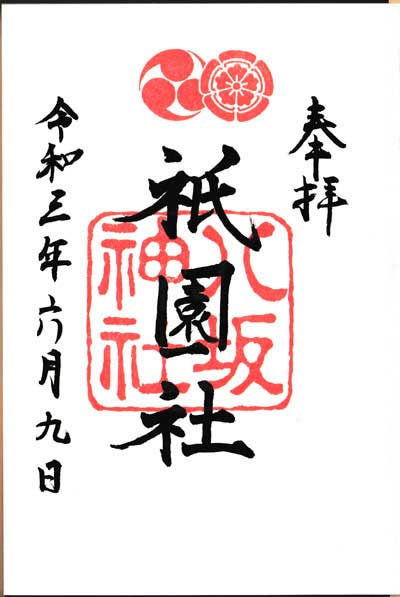 奉拝
祇園社
八坂
神社
令和三年六月九日